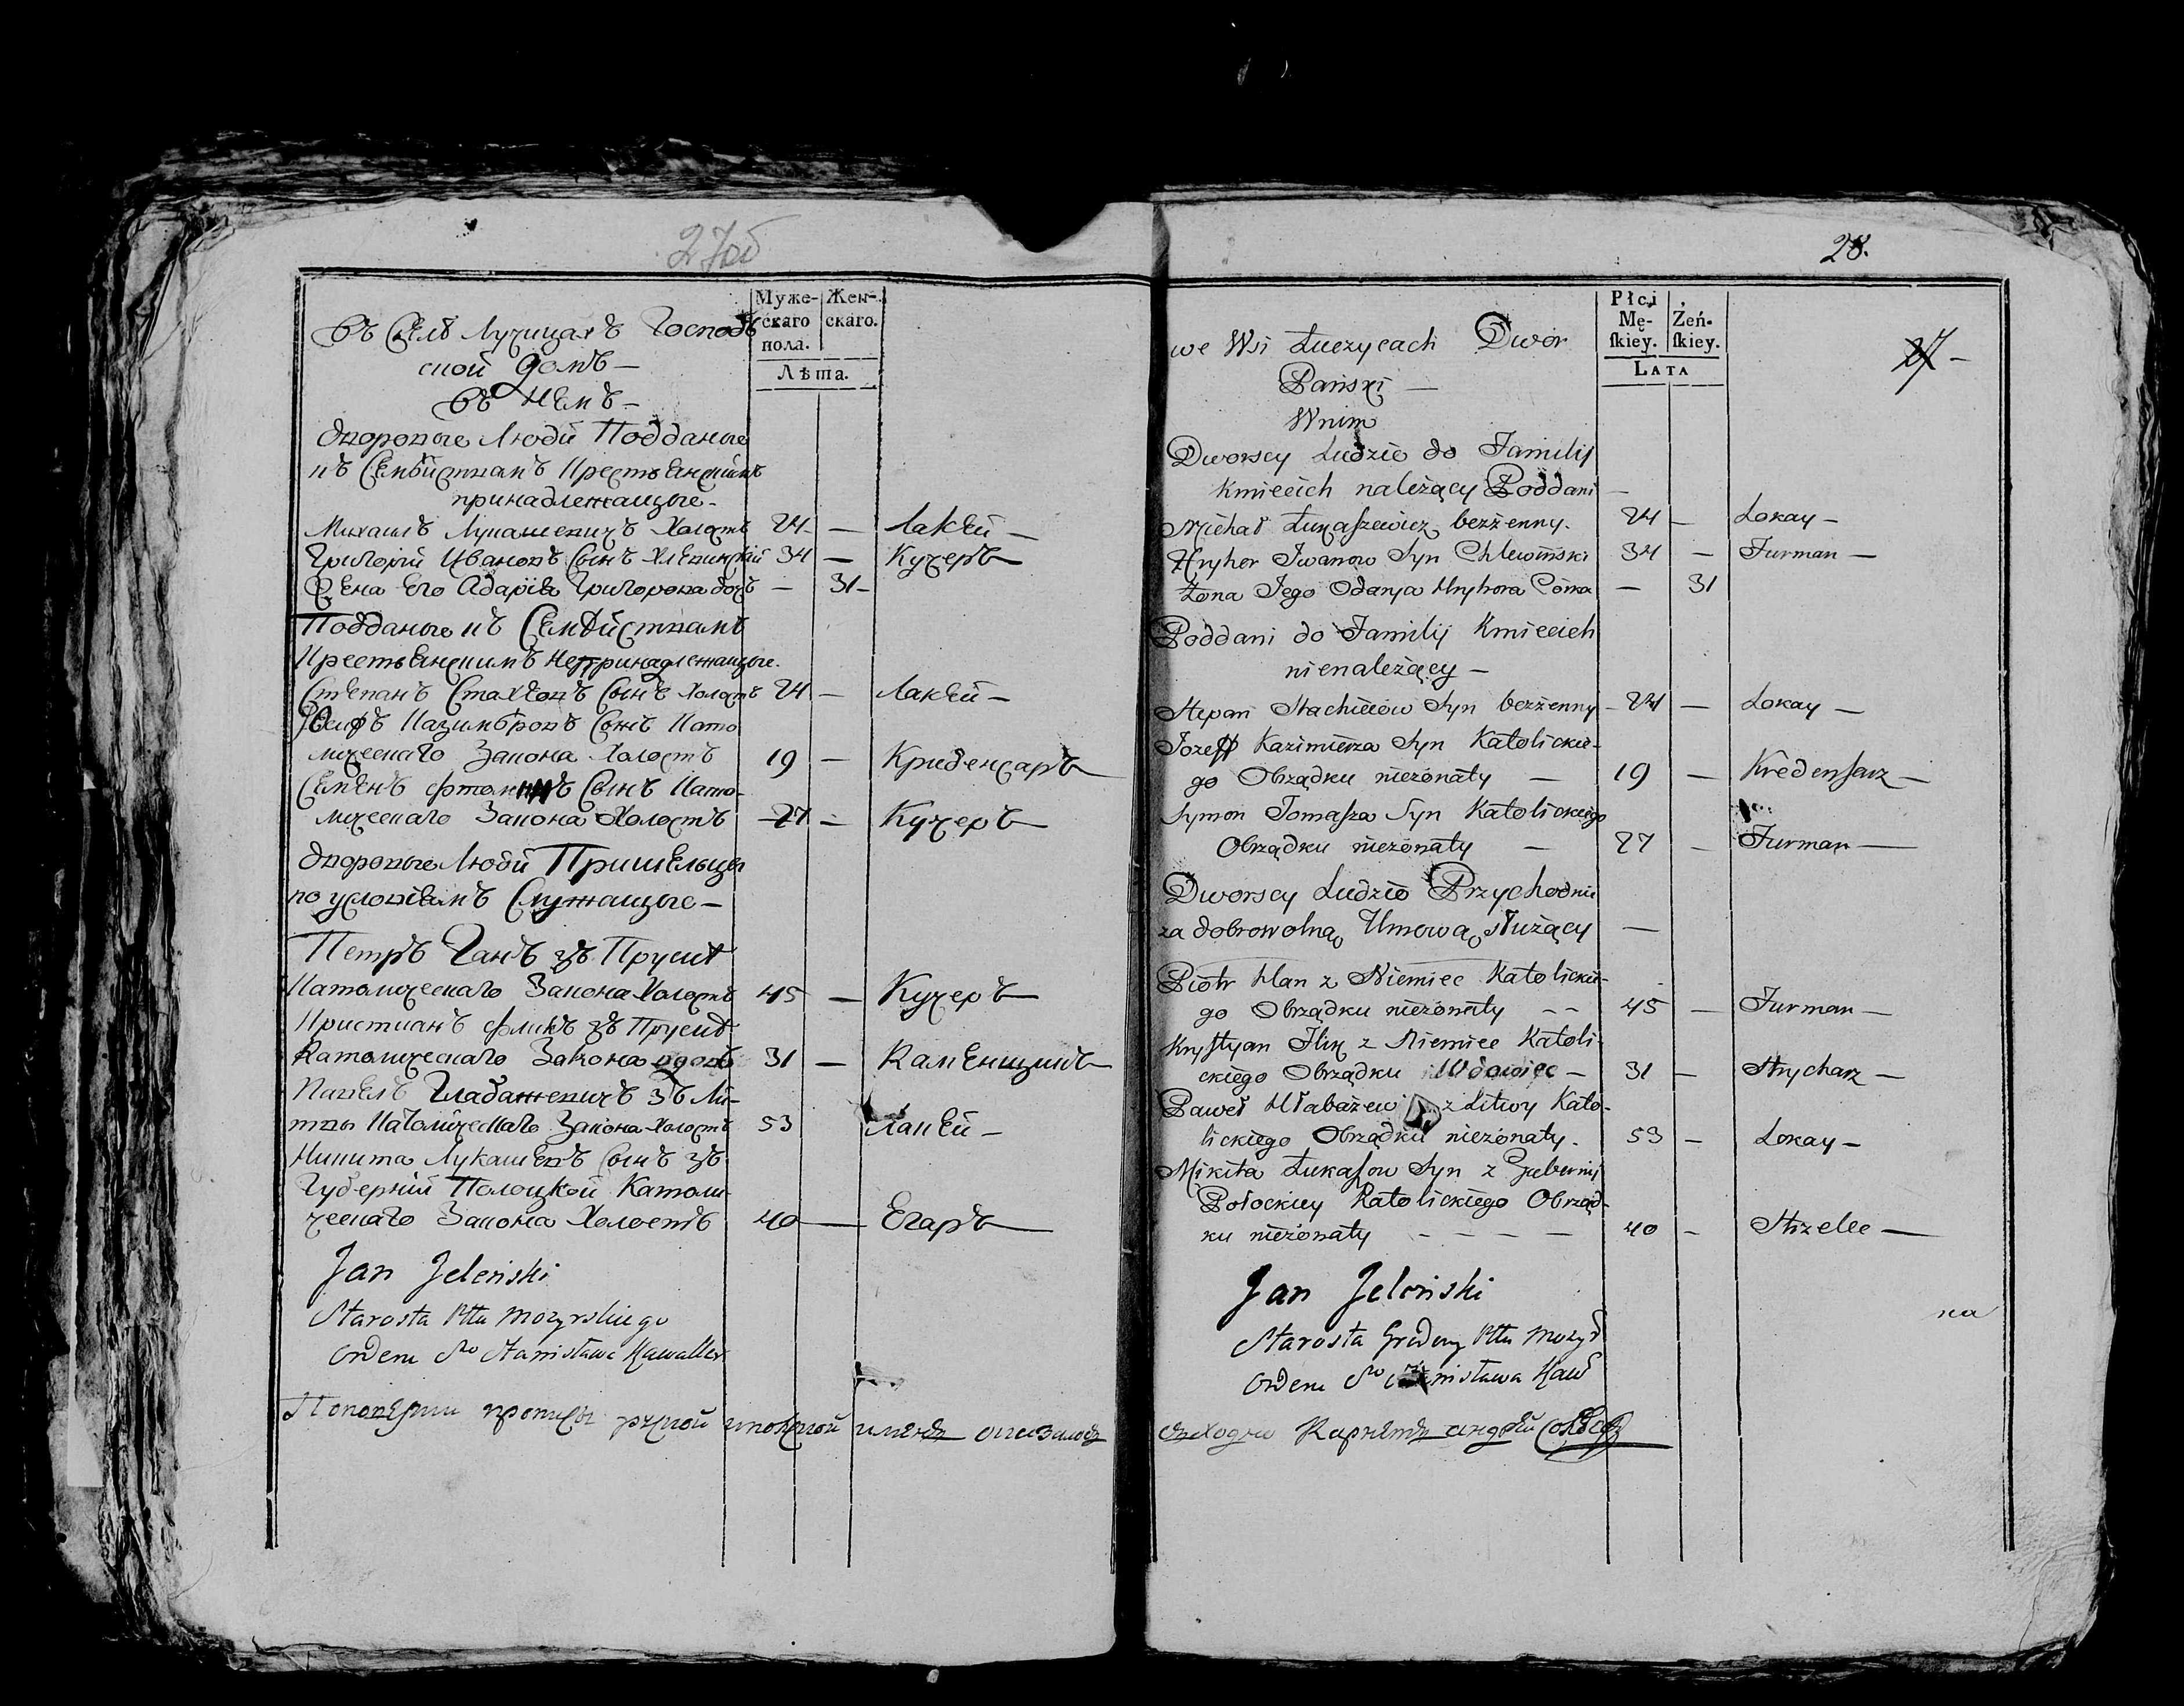 27об
Муже-
скаго
пола.
Жен-
скаго.
Лѣта.
Въ Селѣ Лучицахъ Господ
ской Домъ —
Въ Немъ —
Дворовые Люди Подданые
къ Семѣйствамъ Крестьянскимъ
принадлежащые —
Михаилъ Лукашевичъ Холостъ 24 — Лакей —
Григорій Ивановъ Сынъ Хлевинскій 34 — Кучеръ —
Жена Его Адарія Григорова дочь — 31 —
Подданые къ Семѣйствамъ
Крестьянскимъ Непринадлежащые.
Степанъ Стахѣевъ Сынъ Холостъ 24 — Лакей —
Іосифъ Казимѣровъ Сынъ Като
лическаго Закона Холостъ 19 — Криденсаръ
Семенъ Сынъ Като-
лическаго Закона Холостъ 27 — Кучеръ —
Дворовые Люди Пришельцы
по условіямъ Служащые —
Петръ Ганъ зъ Прусіи
Католическаго Закона Холостъ 45 — Кучеръ —
Кристианъ Фликъ зъ Прусіи
Католическаго Закона вдовъ 31 — Каменщикъ
Павелъ Глабажевичъ зъ Ли-
твы Католическаго Закона Холостъ 53 Лакей —
Никита Лукашевъ Сынъ зъ
Губерніи Полоцкой Католи
ческаго Закона Холостъ 40 — Егаръ —
Jan Jeleński
Starosta Pttu Mozyrskiego
Orderu Sgo Stanisława Kawaller
По поверки ревизской сказкой
28.
27 —
Płci
Mę-
ſkiey.
Żeń-
ſkiey.
LATA
we Wsi Łuczycach Dwór
Pański —
W nim
Dworscy Ludzie do Familij
Kmiecich należący Poddani —
Michał Łukaszewicz bezżenny. 24 — Lokay —
Hryhor Iwanow Syn Chlewiński 34 — Furman —
Żona Jego Odarya Hryhora Córka — 31
Poddani do Familij Kmiecich
nienależący —
Stepan Stachiejów Syn bezżenny — 24 — Lokay —
Jozeff Kazimierza Syn Katolickie-
go Obrządku nieżonaty — 19 — Kredenſarz —
Symon Tomaſza Syn Katolickiego
Obrządku nieżonaty — 27 — Furman —
Dworscy Ludzie Przychodnie
za dobrowolną Umową służący —
Piotr Han z Niemiec Katolickie-
go Obrządku nieżonaty — — 45 — Furman —
Kryſtyan Flik z Niemiec Katoli-
ckiego Obrządku Wdowiec — 31 — Strycharz —
Paweł Hłabażew z Litwy Kato-
lickiego Obrządku nieżonaty. 53 — Lokay —
Mikita Łukaſow Syn z Gubernij
Połockiey Katolickiego Obrząd-
ku nieżonaty — — — — 40 — Strzelec —
Jan Jeleński
Starosta Grodowy Pttu Mozyr
Orderu Sgo Stanisława Kaw
na